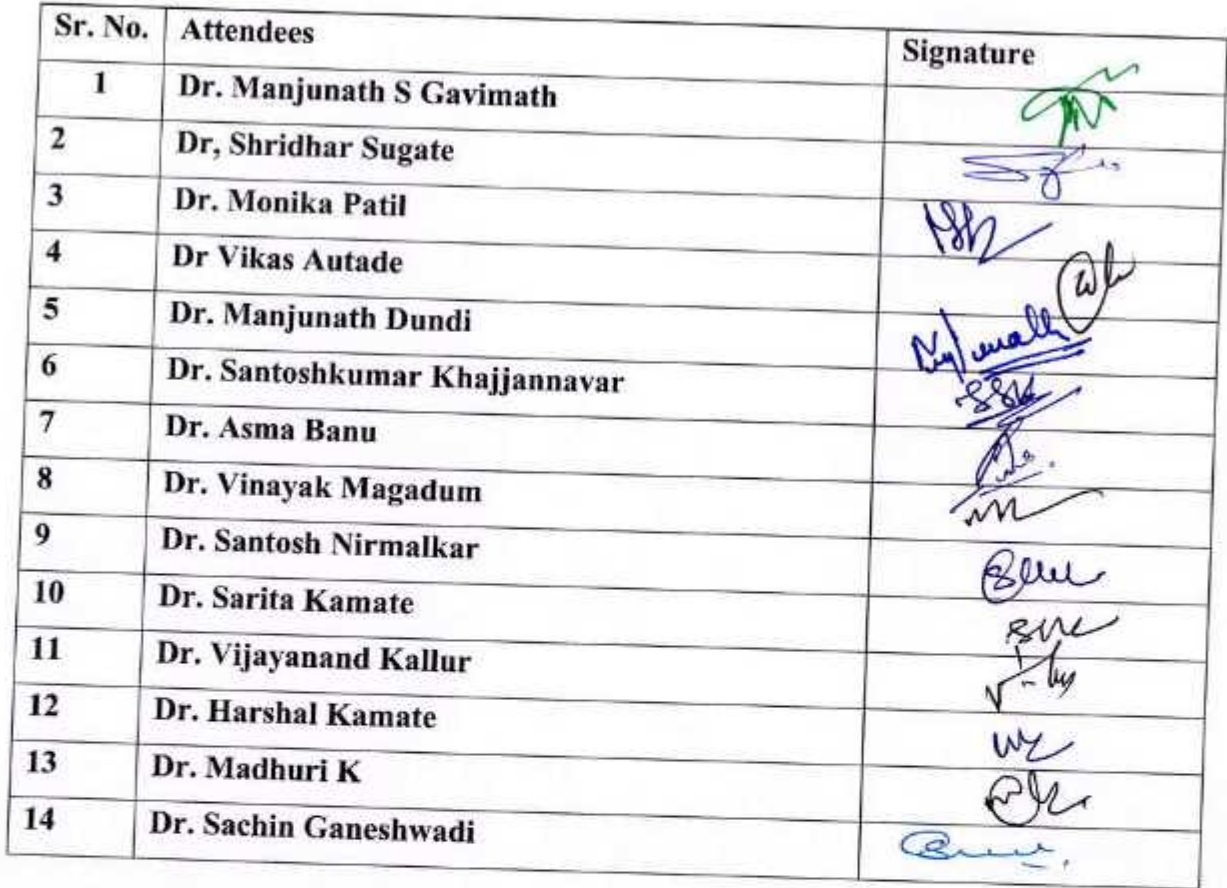 Sr. No. Attendees Signature
1 Dr. Manjunath S Gavimath
2 Dr, Shridhar Sugate
3 Dr. Monika Patil
4 Dr Vikas Autade
5 Dr. Manjunath Dundi
6 Dr. Santoshkumar Khajjannavar
7 Dr. Asma Banu
8 Dr. Vinayak Magadum
9 Dr. Santosh Nirmalkar
10 Dr. Sarita Kamate
11 Dr. Vijayanand Kallur
12 Dr. Harshal Kamate
13 Dr. Madhuri K
14 Dr. Sachin Ganeshwadi